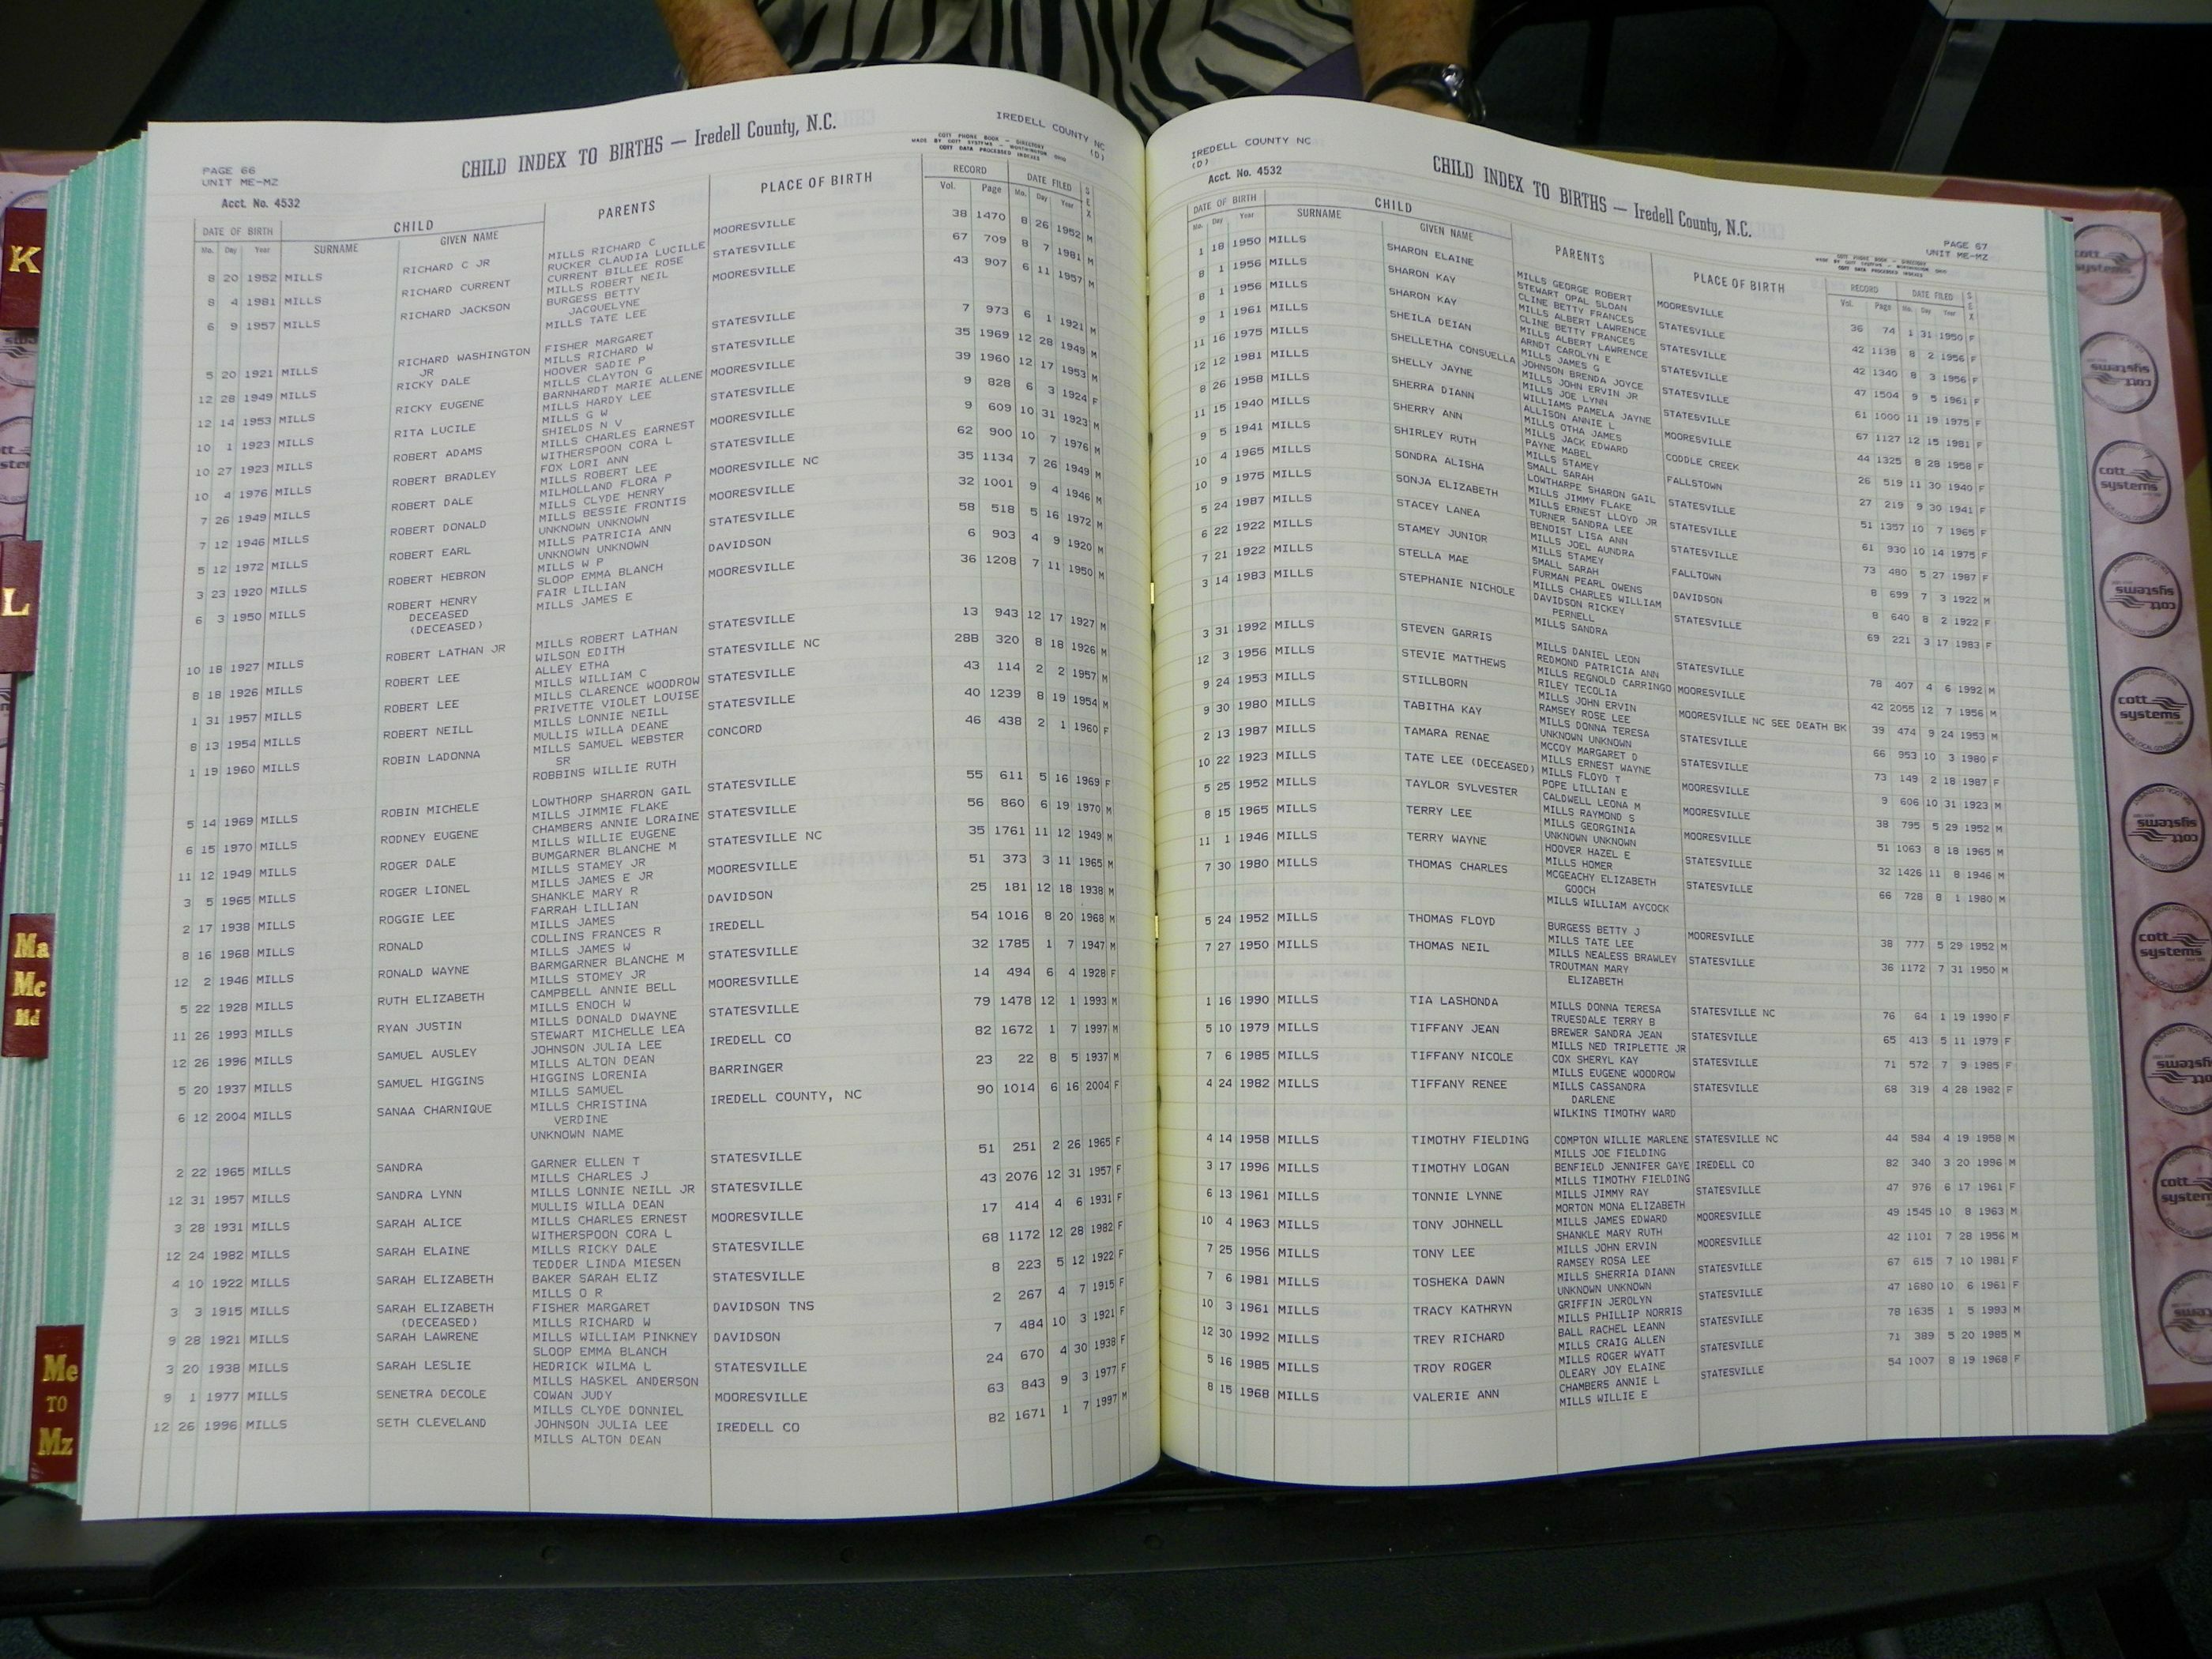 IREDELL COUNTY NC
(D)
COTT PHONE BOOK - DIRECTORY
MADE BY COTT SYSTEMS - WORTHINGTON OHIO
COTT DATA PROCESSED INDEXES
CHILD INDEX TO BIRTHS — Iredell County, N.C.
PAGE 66
UNIT ME-MZ
Acct. No. 4532
DATE OF BIRTH CHILD PARENTS PLACE OF BIRTH RECORD DATE FILED SEX
Mo. Day Year SURNAME GIVEN NAME Vol. Page Mo. Day Year
8 20 1952 MILLS RICHARD C JR MILLS RICHARD C MOORESVILLE 38 1470 8 26 1952 M
RUCKER CLAUDIA LUCILLE
8 4 1981 MILLS RICHARD CURRENT CURRENT BILLEE ROSE STATESVILLE 67 709 8 7 1981 M
MILLS ROBERT NEIL
6 9 1957 MILLS RICHARD JACKSON BURGESS BETTY MOORESVILLE 43 907 6 11 1957 M
JACQUELYNE
MILLS TATE LEE
5 20 1921 MILLS RICHARD WASHINGTON FISHER MARGARET STATESVILLE 7 973 6 1 1921 M
JR MILLS RICHARD W
12 28 1949 MILLS RICKY DALE HOOVER SADIE P STATESVILLE 35 1969 12 28 1949 M
MILLS CLAYTON G
12 14 1953 MILLS RICKY EUGENE BARNHARDT MARIE ALLENE MOORESVILLE 39 1960 12 17 1953 M
MILLS HARDY LEE
10 1 1923 MILLS RITA LUCILE MILLS G W STATESVILLE 9 828 6 3 1924 F
SHIELDS N V
10 27 1923 MILLS ROBERT ADAMS MILLS CHARLES EARNEST MOORESVILLE 9 609 10 31 1923 M
WITHERSPOON CORA L
10 4 1976 MILLS ROBERT BRADLEY FOX LORI ANN STATESVILLE 62 900 10 7 1976 M
MILLS ROBERT LEE
7 26 1949 MILLS ROBERT DALE MILHOLLAND FLORA P MOORESVILLE NC 35 1134 7 26 1949 M
MILLS CLYDE HENRY
7 12 1946 MILLS ROBERT DONALD MILLS BESSIE FRONTIS MOORESVILLE 32 1001 9 4 1946 M
UNKNOWN UNKNOWN
5 12 1972 MILLS ROBERT EARL MILLS PATRICIA ANN STATESVILLE 58 518 5 16 1972 M
UNKNOWN UNKNOWN
3 23 1920 MILLS ROBERT HEBRON MILLS W P DAVIDSON 6 903 4 9 1920 M
SLOOP EMMA BLANCH
6 3 1950 MILLS ROBERT HENRY FAIR LILLIAN MOORESVILLE 36 1208 7 11 1950 M
DECEASED MILLS JAMES E
(DECEASED)
10 18 1927 MILLS ROBERT LATHAN JR MILLS ROBERT LATHAN STATESVILLE 13 943 12 17 1927 M
WILSON EDITH
8 18 1926 MILLS ROBERT LEE ALLEY ETHA STATESVILLE NC 28B 320 8 18 1926 M
MILLS WILLIAM C
1 31 1957 MILLS ROBERT LEE MILLS CLARENCE WOODROW STATESVILLE 43 114 2 2 1957 M
PRIVETTE VIOLET LOUISE
8 13 1954 MILLS ROBERT NEILL MILLS LONNIE NEILL STATESVILLE 40 1239 8 19 1954 M
MULLIS WILLA DEANE
1 19 1960 MILLS ROBIN LADONNA MILLS SAMUEL WEBSTER CONCORD 46 438 2 1 1960 F
SR
ROBBINS WILLIE RUTH
5 14 1969 MILLS ROBIN MICHELE LOWTHORP SHARRON GAIL STATESVILLE 55 611 5 16 1969 F
MILLS JIMMIE FLAKE
6 15 1970 MILLS RODNEY EUGENE CHAMBERS ANNIE LORAINE STATESVILLE 56 860 6 19 1970 M
MILLS WILLIE EUGENE
11 12 1949 MILLS ROGER DALE BUMGARNER BLANCHE M STATESVILLE NC 35 1761 11 12 1949 M
MILLS STAMEY JR
3 5 1965 MILLS ROGER LIONEL MILLS JAMES E JR MOORESVILLE 51 373 3 11 1965 M
SHANKLE MARY R
2 17 1938 MILLS ROGGIE LEE FARRAH LILLIAN DAVIDSON 25 181 12 18 1938 M
MILLS JAMES
8 16 1968 MILLS RONALD COLLINS FRANCES R IREDELL 54 1016 8 20 1968 M
MILLS JAMES W
12 2 1946 MILLS RONALD WAYNE BARMGARNER BLANCHE M STATESVILLE 32 1785 1 7 1947 M
MILLS STOMEY JR
5 22 1928 MILLS RUTH ELIZABETH CAMPBELL ANNIE BELL MOORESVILLE 14 494 6 4 1928 F
MILLS ENOCH W
11 26 1993 MILLS RYAN JUSTIN MILLS DONALD DWAYNE STATESVILLE 79 1478 12 1 1993 M
STEWART MICHELLE LEA
12 26 1996 MILLS SAMUEL AUSLEY JOHNSON JULIA LEE IREDELL CO 82 1672 1 7 1997 M
MILLS ALTON DEAN
5 20 1937 MILLS SAMUEL HIGGINS HIGGINS LORENIA BARRINGER 23 22 8 5 1937 M
MILLS SAMUEL
6 12 2004 MILLS SANAA CHARNIQUE MILLS CHRISTINA IREDELL COUNTY, NC 90 1014 6 16 2004 F
VERDINE
UNKNOWN NAME
2 22 1965 MILLS SANDRA GARNER ELLEN T STATESVILLE 51 251 2 26 1965 F
MILLS CHARLES J
12 31 1957 MILLS SANDRA LYNN MILLS LONNIE NEILL JR STATESVILLE 43 2076 12 31 1957 F
MULLIS WILLA DEAN
3 28 1931 MILLS SARAH ALICE MILLS CHARLES ERNEST MOORESVILLE 17 414 4 6 1931 F
WITHERSPOON CORA L
12 24 1982 MILLS SARAH ELAINE MILLS RICKY DALE STATESVILLE 68 1172 12 28 1982 F
TEDDER LINDA MIESEN
4 10 1922 MILLS SARAH ELIZABETH BAKER SARAH ELIZ STATESVILLE 8 223 5 12 1922 F
MILLS O R
3 3 1915 MILLS SARAH ELIZABETH FISHER MARGARET DAVIDSON TNS 2 267 4 7 1915 F
(DECEASED) MILLS RICHARD W
9 28 1921 MILLS SARAH LAWRENE MILLS WILLIAM PINKNEY DAVIDSON 7 484 10 3 1921 F
SLOOP EMMA BLANCH
3 20 1938 MILLS SARAH LESLIE HEDRICK WILMA L STATESVILLE 24 670 4 30 1938 F
MILLS HASKEL ANDERSON
9 1 1977 MILLS SENETRA DECOLE COWAN JUDY MOORESVILLE 63 843 9 3 1977 F
MILLS CLYDE DONNIEL
12 26 1996 MILLS SETH CLEVELAND JOHNSON JULIA LEE IREDELL CO 82 1671 1 7 1997 M
MILLS ALTON DEAN
IREDELL COUNTY NC
(D)
Acct. No. 4532
CHILD INDEX TO BIRTHS — Iredell County, N.C.
PAGE 67
UNIT ME-MZ
COTT PHONE BOOK - DIRECTORY
MADE BY COTT SYSTEMS - WORTHINGTON OHIO
COTT DATA PROCESSED INDEXES
DATE OF BIRTH CHILD PARENTS PLACE OF BIRTH RECORD DATE FILED SEX
Mo. Day Year SURNAME GIVEN NAME Vol. Page Mo. Day Year
1 18 1950 MILLS SHARON ELAINE MILLS GEORGE ROBERT MOORESVILLE 36 74 1 31 1950 F
STEWART OPAL SLOAN
8 1 1956 MILLS SHARON KAY CLINE BETTY FRANCES STATESVILLE 42 1138 8 2 1956 F
MILLS ALBERT LAWRENCE
8 1 1956 MILLS SHARON KAY CLINE BETTY FRANCES STATESVILLE 42 1340 8 3 1956 F
MILLS ALBERT LAWRENCE
9 1 1961 MILLS SHEILA DEIAN ARNDT CAROLYN E STATESVILLE 47 1504 9 5 1961 F
MILLS JAMES G
11 16 1975 MILLS SHELLETHA CONSUELLA JOHNSON BRENDA JOYCE STATESVILLE 61 1000 11 19 1975 F
MILLS JOHN ERVIN JR
12 12 1981 MILLS SHELLY JAYNE MILLS JOE LYNN MOORESVILLE 67 1127 12 15 1981 F
WILLIAMS PAMELA JAYNE
8 26 1958 MILLS SHERRA DIANN ALLISON ANNIE L CODDLE CREEK 44 1325 8 28 1958 F
MILLS OTHA JAMES
11 15 1940 MILLS SHERRY ANN MILLS JACK EDWARD FALLSTOWN 26 519 11 30 1940 F
PAYNE MABEL
9 5 1941 MILLS SHIRLEY RUTH MILLS STAMEY STATESVILLE 27 219 9 30 1941 F
SMALL SARAH
10 4 1965 MILLS SONDRA ALISHA LOWTHARPE SHARON GAIL STATESVILLE 51 1357 10 7 1965 F
MILLS JIMMY FLAKE
10 9 1975 MILLS SONJA ELIZABETH MILLS ERNEST LLOYD JR STATESVILLE 61 930 10 14 1975 F
TURNER SANDRA LEE
5 24 1987 MILLS STACEY LANEA BENOIST LISA ANN FALLTOWN 73 480 5 27 1987 F
MILLS JOEL AUNDRA
6 22 1922 MILLS STAMEY JUNIOR MILLS STAMEY DAVIDSON 8 699 7 3 1922 M
SMALL SARAH
7 21 1922 MILLS STELLA MAE FURMAN PEARL OWENS STATESVILLE 8 640 8 2 1922 F
MILLS CHARLES WILLIAM
3 14 1983 MILLS STEPHANIE NICHOLE DAVIDSON RICKEY 69 221 3 17 1983 F
PERNELL
MILLS SANDRA
3 31 1992 MILLS STEVEN GARRIS MILLS DANIEL LEON STATESVILLE 78 407 4 6 1992 M
REDMOND PATRICIA ANN
12 3 1956 MILLS STEVIE MATTHEWS MILLS REGNOLD CARRINGO MOORESVILLE 42 2055 12 7 1956 M
RILEY TECOLIA
9 24 1953 MILLS STILLBORN MILLS JOHN ERVIN MOORESVILLE NC SEE DEATH BK 39 474 9 24 1953 M
RAMSEY ROSE LEE
9 30 1980 MILLS TABITHA KAY MILLS DONNA TERESA STATESVILLE 66 953 10 3 1980 F
UNKNOWN UNKNOWN
2 13 1987 MILLS TAMARA RENAE MCCOY MARGARET D STATESVILLE 73 149 2 18 1987 F
MILLS ERNEST WAYNE
10 22 1923 MILLS TATE LEE (DECEASED) MILLS FLOYD T MOORESVILLE 9 606 10 31 1923 M
POPE LILLIAN E
5 25 1952 MILLS TAYLOR SYLVESTER CALDWELL LEONA M MOORESVILLE 38 795 5 29 1952 M
MILLS RAYMOND S
8 15 1965 MILLS TERRY LEE MILLS GEORGINIA MOORESVILLE 51 1063 8 18 1965 M
UNKNOWN UNKNOWN
11 1 1946 MILLS TERRY WAYNE HOOVER HAZEL E STATESVILLE 32 1426 11 8 1946 M
MILLS HOMER
7 30 1980 MILLS THOMAS CHARLES MCGEACHY ELIZABETH STATESVILLE 66 728 8 1 1980 M
GOOCH
MILLS WILLIAM AYCOCK
5 24 1952 MILLS THOMAS FLOYD BURGESS BETTY J MOORESVILLE 38 777 5 29 1952 M
MILLS TATE LEE
7 27 1950 MILLS THOMAS NEIL MILLS NEALESS BRAWLEY STATESVILLE 36 1172 7 31 1950 M
TROUTMAN MARY
ELIZABETH
1 16 1990 MILLS TIA LASHONDA MILLS DONNA TERESA STATESVILLE NC 76 64 1 19 1990 F
TRUESDALE TERRY B
5 10 1979 MILLS TIFFANY JEAN BREWER SANDRA JEAN STATESVILLE 65 413 5 11 1979 F
MILLS NED TRIPLETTE JR
7 6 1985 MILLS TIFFANY NICOLE COX SHERYL KAY STATESVILLE 71 572 7 9 1985 F
MILLS EUGENE WOODROW
4 24 1982 MILLS TIFFANY RENEE MILLS CASSANDRA STATESVILLE 68 319 4 28 1982 F
DARLENE
WILKINS TIMOTHY WARD
4 14 1958 MILLS TIMOTHY FIELDING COMPTON WILLIE MARLENE STATESVILLE NC 44 584 4 19 1958 M
MILLS JOE FIELDING
3 17 1996 MILLS TIMOTHY LOGAN BENFIELD JENNIFER GAYE IREDELL CO 82 340 3 20 1996 M
MILLS TIMOTHY FIELDING
6 13 1961 MILLS TONNIE LYNNE MILLS JIMMY RAY STATESVILLE 47 976 6 17 1961 F
MORTON MONA ELIZABETH
10 4 1963 MILLS TONY JOHNELL MILLS JAMES EDWARD MOORESVILLE 49 1545 10 8 1963 M
SHANKLE MARY RUTH
7 25 1956 MILLS TONY LEE MILLS JOHN ERVIN MOORESVILLE 42 1101 7 28 1956 M
RAMSEY ROSA LEE
7 6 1981 MILLS TOSHEKA DAWN MILLS SHERRIA DIANN STATESVILLE 67 615 7 10 1981 F
UNKNOWN UNKNOWN
10 3 1961 MILLS TRACY KATHRYN GRIFFIN JEROLYN STATESVILLE 47 1680 10 6 1961 F
MILLS PHILLIP NORRIS
12 30 1992 MILLS TREY RICHARD BALL RACHEL LEANN STATESVILLE 78 1635 1 5 1993 M
MILLS CRAIG ALLEN
5 16 1985 MILLS TROY ROGER MILLS ROGER WYATT STATESVILLE 71 389 5 20 1985 M
OLEARY JOY ELAINE
8 15 1968 MILLS VALERIE ANN CHAMBERS ANNIE L STATESVILLE 54 1007 8 19 1968 F
MILLS WILLIE E
K
L
Ma
Mc
Md
Me
TO
Mz
cott
systems
cott
systems
cott
systems
cott
systems
cott
systems